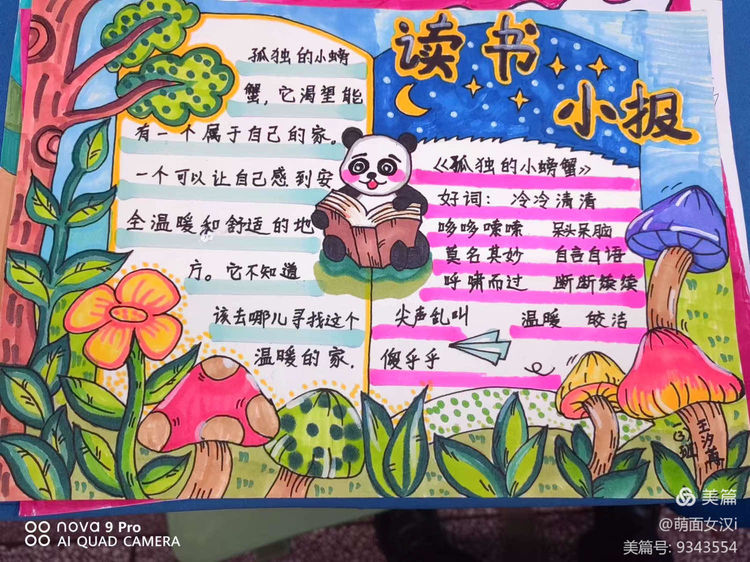 读书
小报
孤独的小螃
蟹，它渴望能
有一个属于自己的家。
一个可以让自己感到安
全温暖和舒适的地
方。它不知道
该去哪儿寻找这个
温暖的家.
《孤独的小螃蟹》
好词： 冷冷清清
哆哆嗦嗦 呆头呆脑
莫名其妙 自言自语
呼啸而过 断断续续
尖声乱叫 温暖 皎洁
傻乎乎
一(3)班
nova 9 Pro
AI QUAD CAMERA
美篇
@萌面女汉i
美篇号: 9343554